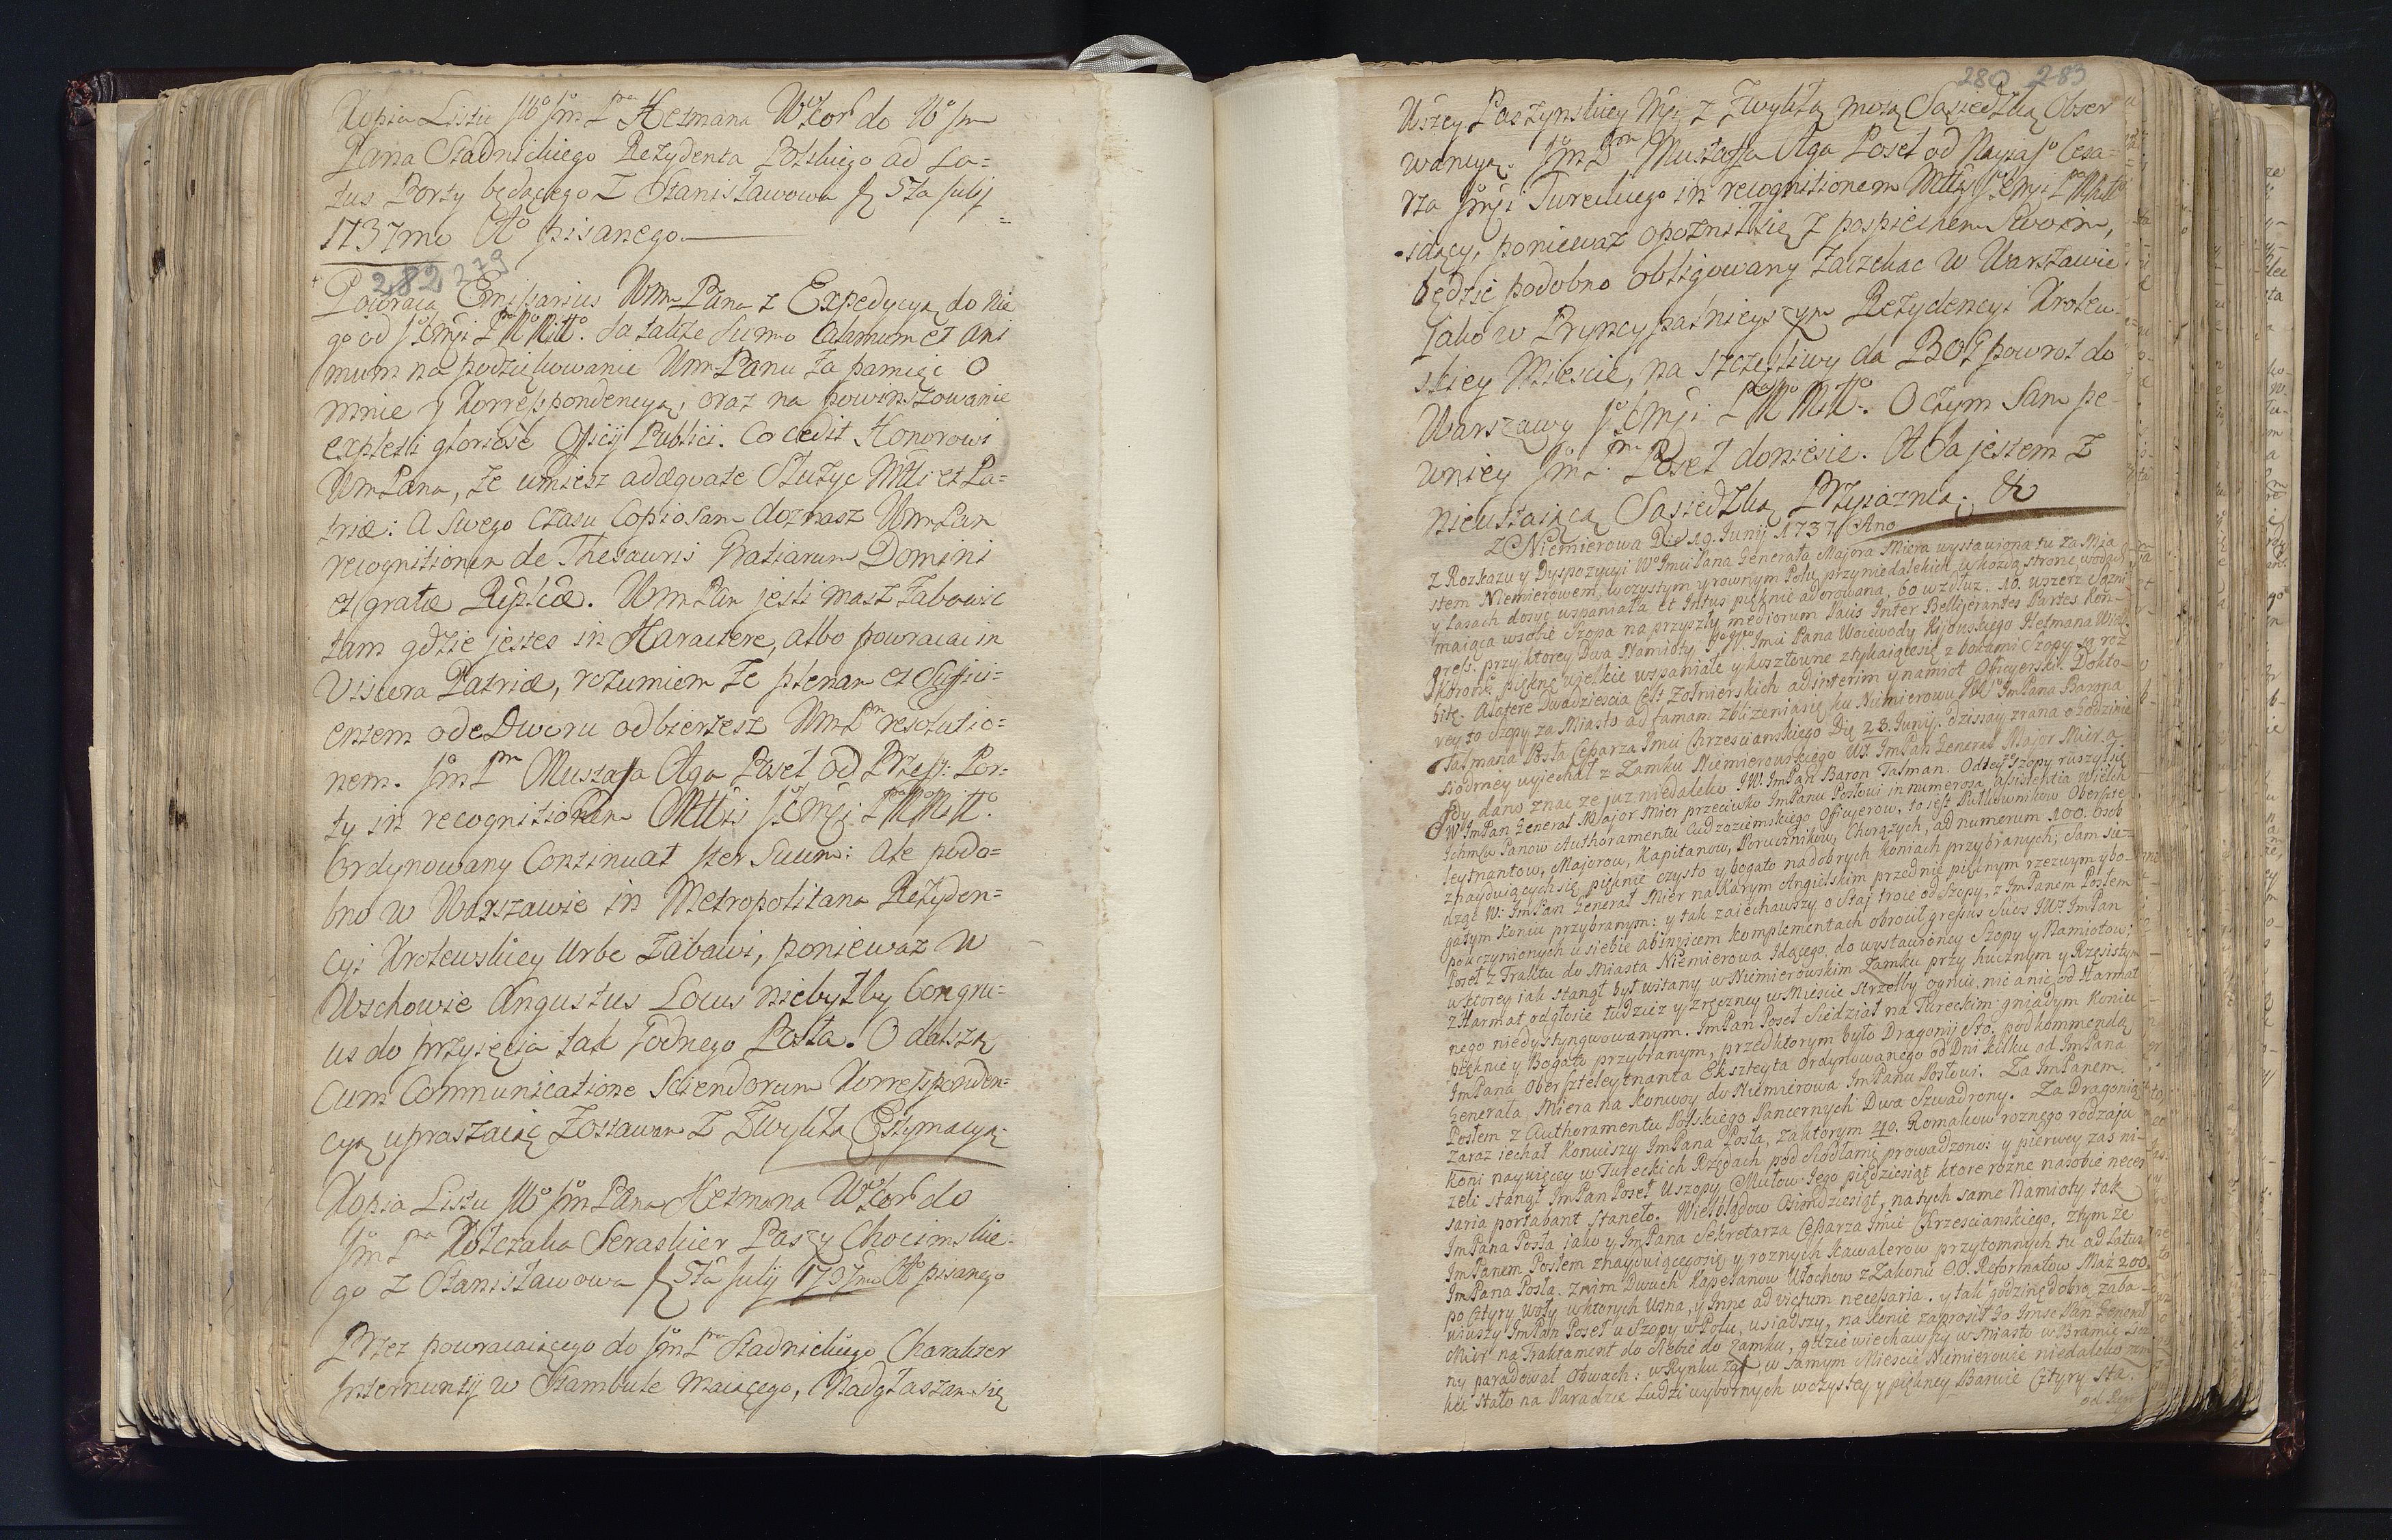 Kopia Listu JWo Jmo Pna Hetmana WKor do Wo Jm
Pana Stadnickiego Rezydenta Polskiego ad La=
tus Porty będącego Z Stanisławowa d 5ta Julij
1737mo Ao pisanego
282 279
Powraca Emisarius WmPana z Expedycyą do Nie
go od JoKMji PaNoMiło. Ja także sumo Calamum et Ani
mum na podziękowanie WmPanu za pamięć o
mnie y Korrespondencyą, oraz na powinszowanie
expleti gloriose Officij Publici. Co cedit Honorowi
WmPana, że umiesz adæquate Służyć Mtti et Pa=
triæ: a swego Czasu Copiosam doznasz WmPan
recognitionem de Thesauris Gratiarum Domini
et gratæ Reiplicæ. WmPan jeśli masz zabawić
tam gdzie jesteś in Haractere, albo powracać in
Viscera Patriæ, rozumiem że plenam et Suffici=
entem ode Dworu odbierzesz WmPn resolutio=
nem. Jm Pn Mustafa Aga Poseł od Przesw: Por=
ty in recognitionem Mttis JoKMji PNMiło.
Ordynowany Continuat Iter Suum: ale podo=
bno w Warszawie in Metropolitana Rezyden=
cyi Krolewskiey Urbe zabawi, ponieważ w
Wschowie Angustus Locus niebyłby Congru=
us do przyięcia tak godnego Posła. O dalszą
Cum Communicatione Sciendorum Korresponden=
cyą upraszaiąc Zostawam Z Zwykłą Estymacyą.
Kopia Listu JWo Jmo Pana Hetmana WKor do
Jm Pa Kołczaka Seraskier Paszy Chocimskie=
go Z Stanisławowa d 5ta Julij 1737mo Ao pisanego
Przez powracaiącego do Jm Pna Stadnickiego Charakter
Internuncij w Stambule maiącego, Nadgłaszam się
280 283
Wszey Paszynskiey Mji z Zwykłą moią Sąsiedzką Obser
wancyą. Jm Pn Mustaffa Aga Poseł od Nayja Jo Cesa=
rza Jmji Tureckiego in recognitionem Mttis JoKmji PNMiło
idący, ponieważ opoznił się z pospiechem Swoim,
będzie podobno obligowany zaczekać w Warszawie
Jako w Pryncypalnieyszym Rezydencyi Krolew=
skiey Mieście, na szczęśliwy da BOG powrot do
Warszawy JoKMji PNMiło. O czym Sam pe=
wniey Jm Pn Poseł doniesie. A Ja jestem Z
nieustaiącą Sąsiedzką Przyiaznią. &
Z Niemierowa Die 19 Junij 1737 Ano
Z Rozkazu y Dyspozycyi Wo Jmci Pana Generała Majora Miera wystawiona tu za Mia
stem Niemierowem, w czystym y rownym Polu, przy niedalekich w kożdą stronę wodach
y Lasach dosyć wspaniała et Intus pięknie adorowana, 60 wzdłuż, 10. wszerz Sążni
maiąca w sobie Szopa na przyszły mediorum Pacis Inter Bellijerantes Partes Kon=
gress. przy ktorey Dwa Namioty Jo Wo Jmci Pana Woiewody Kijowskiego Hetmana Wiel.
Koronn. piękne wielkie wspaniałe y kosztowne stykaiącesię z bokami Szopy są roz
bite. Alatere Dwadzieścia Cest Zołnierskich ad interim y namiot Officyerski. Dokto=
rey to Szopy za Miasto ad famam zbliżeniasię ku Niemierowu JWo Jm Pana Barona
Talmana Posła Cesarza Jmci Chrześcianskiego Die 28. Junij. dzisiay zrana o Godzinie
siodmey wyiechał z Zamku Niemierowskiego W. Jm Pan Generał Major Mier, a
gdy dano znać że już niedaleko JW. Jm Pan Baron Talman. Od tey Szopy ruszył się
W Jm Pan Generał Major Mier przeciwko Jm Panu Posłowi in numerosa Assistentia wielu
Ichmćw Panow Authoramentu Cudzoziemskiego Officyerow, to iest Pułkownikow Oberszte=
leytnantow, Majorow, Kapitanow, Porucznikow, Chorążych, ad numerum 100. osob
znayduiącychsię, pięknie czysto y bogato na dobrych koniach przybranych; Sam su=
nząc W: Jm Pan Generał Mier na Karym Angielskim przednie pięknym rzezwym y bo=
gatym koniu przybranym: y tak zaiechawszy o Staj troie od Szopy, z Jm Panem Posłem
po uczynionych u siebie ab invicem komplementach obrocił gressus Suos JW. Jm Pan
Poseł z Traktu do Miasta Niemierowa Idącego, do wystawioney Szopy y Namiotow;
w ktorey iak stanął był witany w Niemierowskim Zamku przy hucznym y Rzęsistym
z Harmat odgłosie tudzież y zręczney w Mieście Strzelby ogniu, nic a nic od Harmat
nego niedystyngwowanym. Jm Pan Poseł Siedział na Tureckim gniadym Koniu
pięknie y Bogato przybranym, przed ktorym było Dragonij Sto. pod kommendą
Jm Pana Oberszteleytnanta Eksztęyta Ordynowanego od Dni kilku od Jm Pana
Generała Miera na Konwoy do Niemierowa Jm Panu Posłowi. Za Jm Panem
Posłem z Authoramentu Polskiego Pancernych Dwa Szwadrony. Za Dragonią
zaraz iechał Koniuszy Jm Pana Posła, za ktorym 40. Rumakow roznego rodzaju
koni naywięcey w Tureckich Rzędach pod Siodłami prowadzono: y pierwey zas ni=
żeli stanął Jm Pan Poseł u Szopy Mułow Jego pięćdziesiąt ktore rożne na sobie neces
saria portabant staneło. Wielblądow Ośmdziesiąt, na tych same Namioty tak
Jm Pana Posła jako y Jm Pana Sekretarza Cesarza Jmci Chrześcianskiego, z tym że
Jm Panem Posłem znayduiącegosię y roznych Kawalerow przytomnych tu ad Latus
Jm Pana Posła. Z nim Dwuch Kapelanow Włochow z Zakonu O.O. Reformatow Maż 200.
po Cztyry Woły w ktorych Wina, y Inne ad victum necessaria. y tak godzinę dobrą zaba=
wiwszy Jm Pan Poseł u Szopy w Polu, usiadszy, na konie zaprosił Go Jmsc Pan Generał
Mier na Traktament do Siebie do Zamku, gdzie wiechawszy w Miasto w Bramie
ny paradował Obwach: w Rynku zas, w samym Mieście Niemierowie niedaleko
ku stało na Paradzie Ludzi wybornych w czystey y piękney Barwie Cztyry Sta.